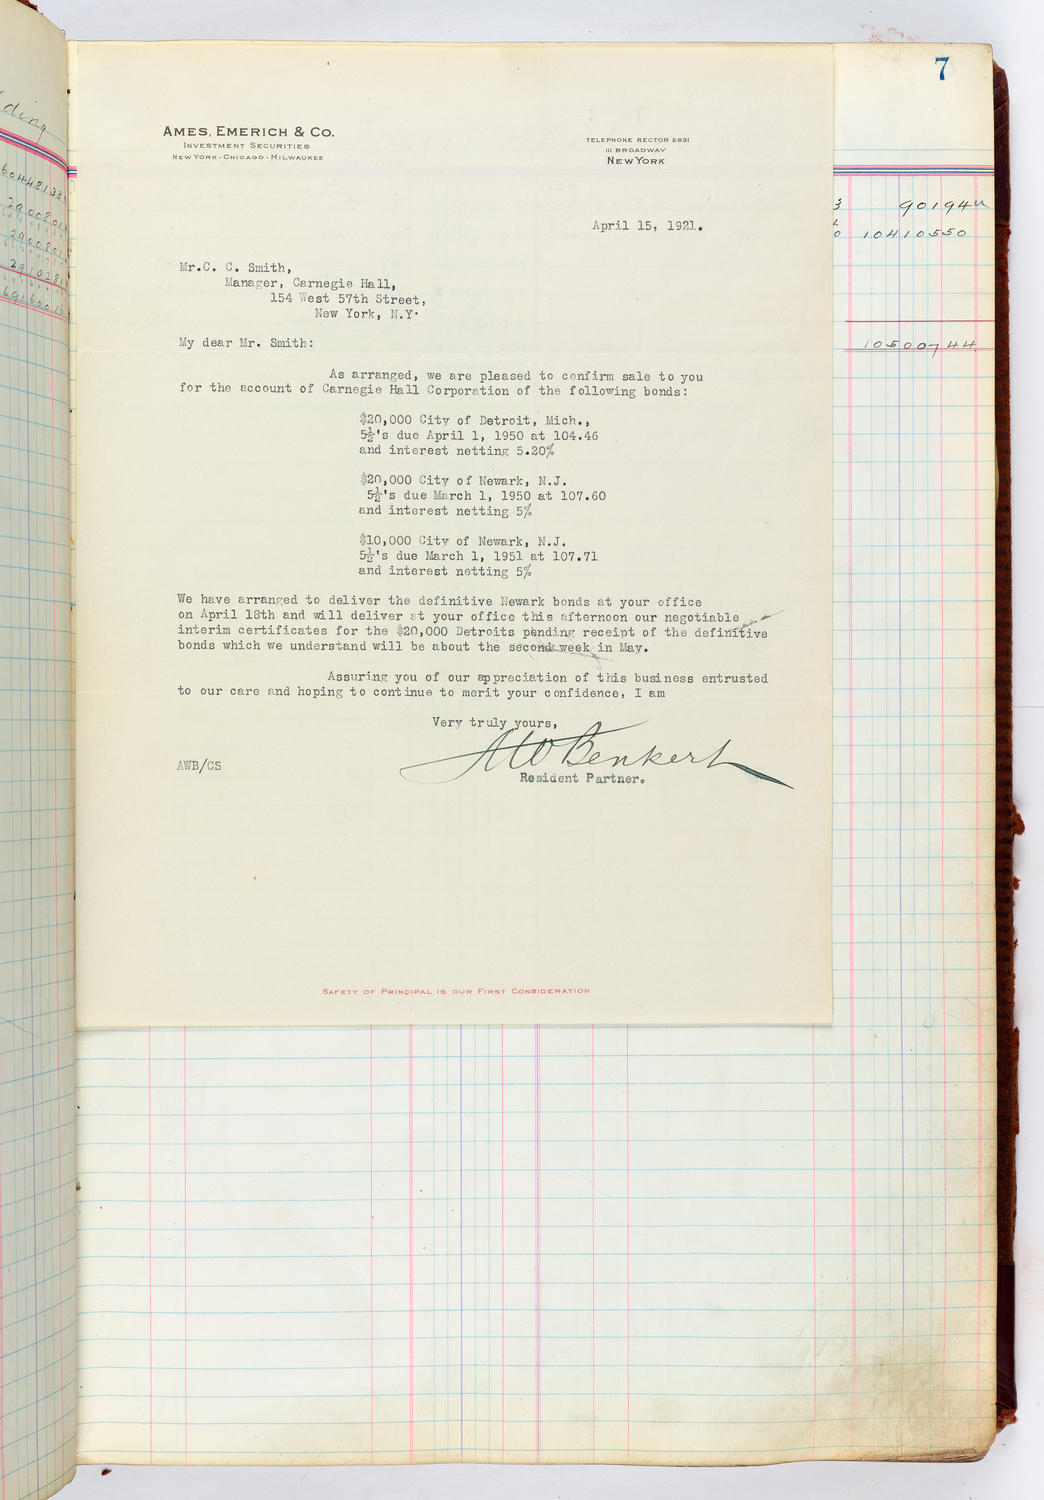 7
ding
6044813 3
290080
290080
291028
6916001
AMES, EMERICH & CO.
INVESTMENT SECURITIES
NEW YORK-CHICAGO-MILWAUKEE
TELEPHONE RECTOR 2631
111 BROADWAY
NEW YORK
3 90194
0 10410550
10500744
April 15, 1921.
Mr.C. C. Smith,
Manager, Carnegie Hall,
154 West 57th Street,
New York, N.Y.
My dear Mr. Smith:
As arranged, we are pleased to confirm sale to you
for the account of Carnegie Hall Corporation of the following bonds:
$20,000 City of Detroit, Mich.,
5½'s due April 1, 1950 at 104.46
and interest netting 5.20%
$20,000 City of Newark, N.J.
5½'s due March 1, 1950 at 107.60
and interest netting 5%
$10,000 City of Newark, N.J.
5½'s due March 1, 1951 at 107.71
and interest netting 5%
We have arranged to deliver the definitive Newark bonds at your office
on April 18th and will deliver at your office this afternoon our negotiable
interim certificates for the $20,000 Detroits pending receipt of the definitive
bonds which we understand will be about the second week in May.
Assuring you of our appreciation of this business entrusted
to our care and hoping to continue to merit your confidence, I am
Very truly yours,
AW Benkert
AWB/CS
Resident Partner.
SAFETY OF PRINCIPAL IS OUR FIRST CONSIDERATION